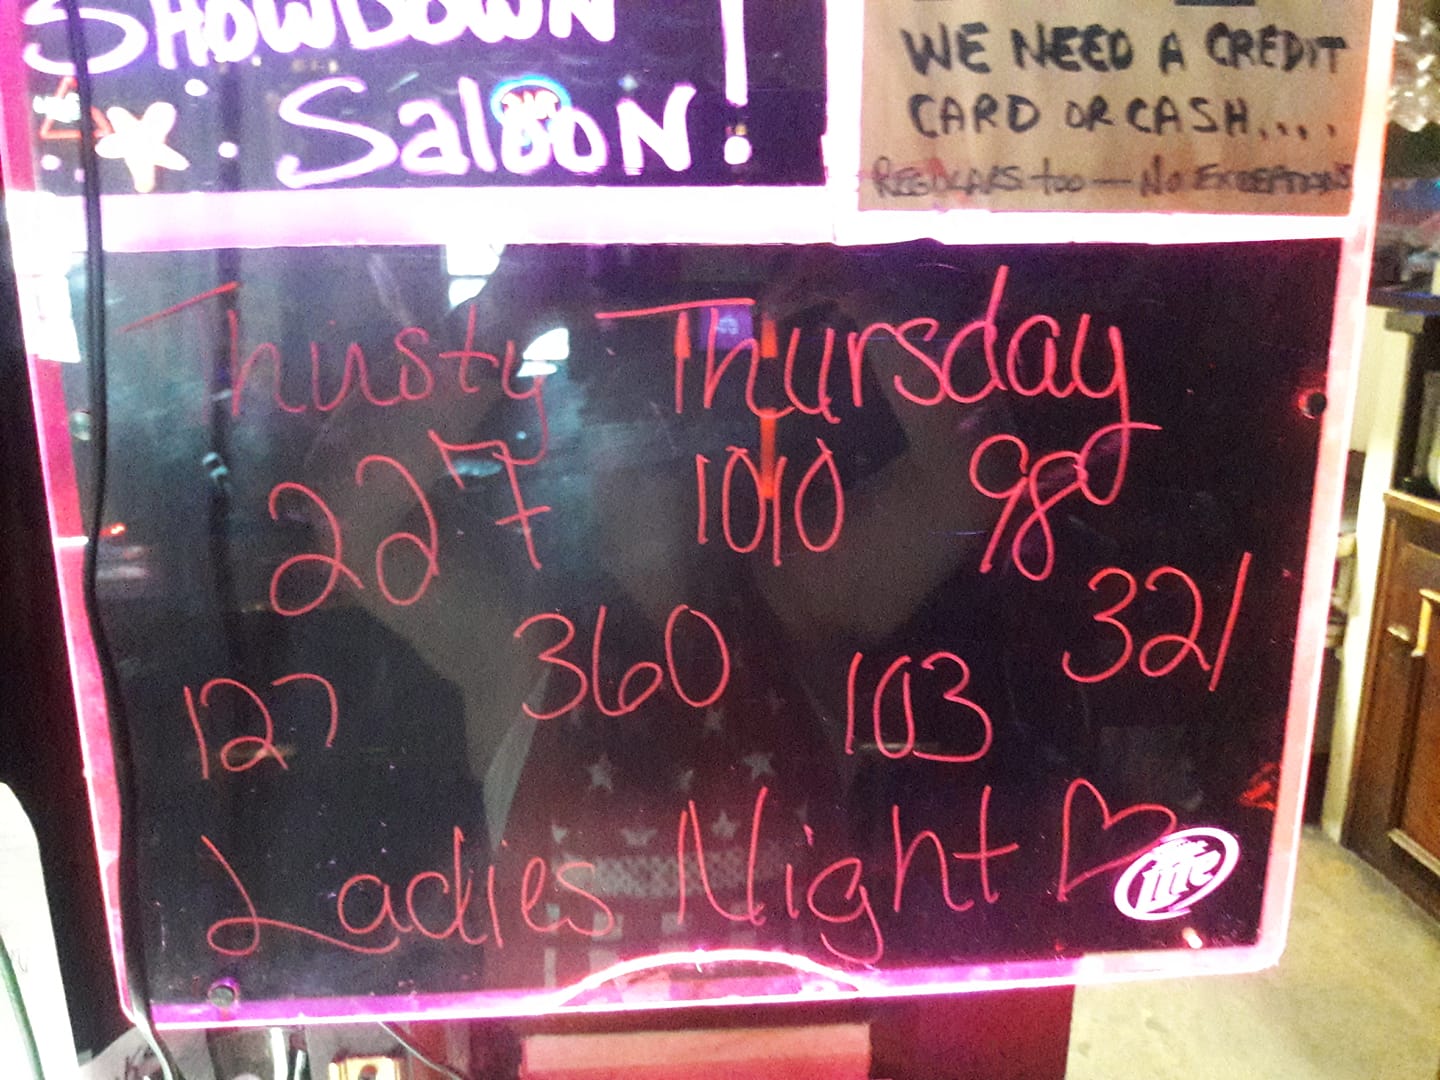 SHOWDOWN
Saloon!
WE NEED A CREDIT
CARD OR CASH....
REGULARS too — No EXCEPTIONS
Thusty Thursday
227 1010 98
127 360 103 321
Ladies Night ♡
Lite